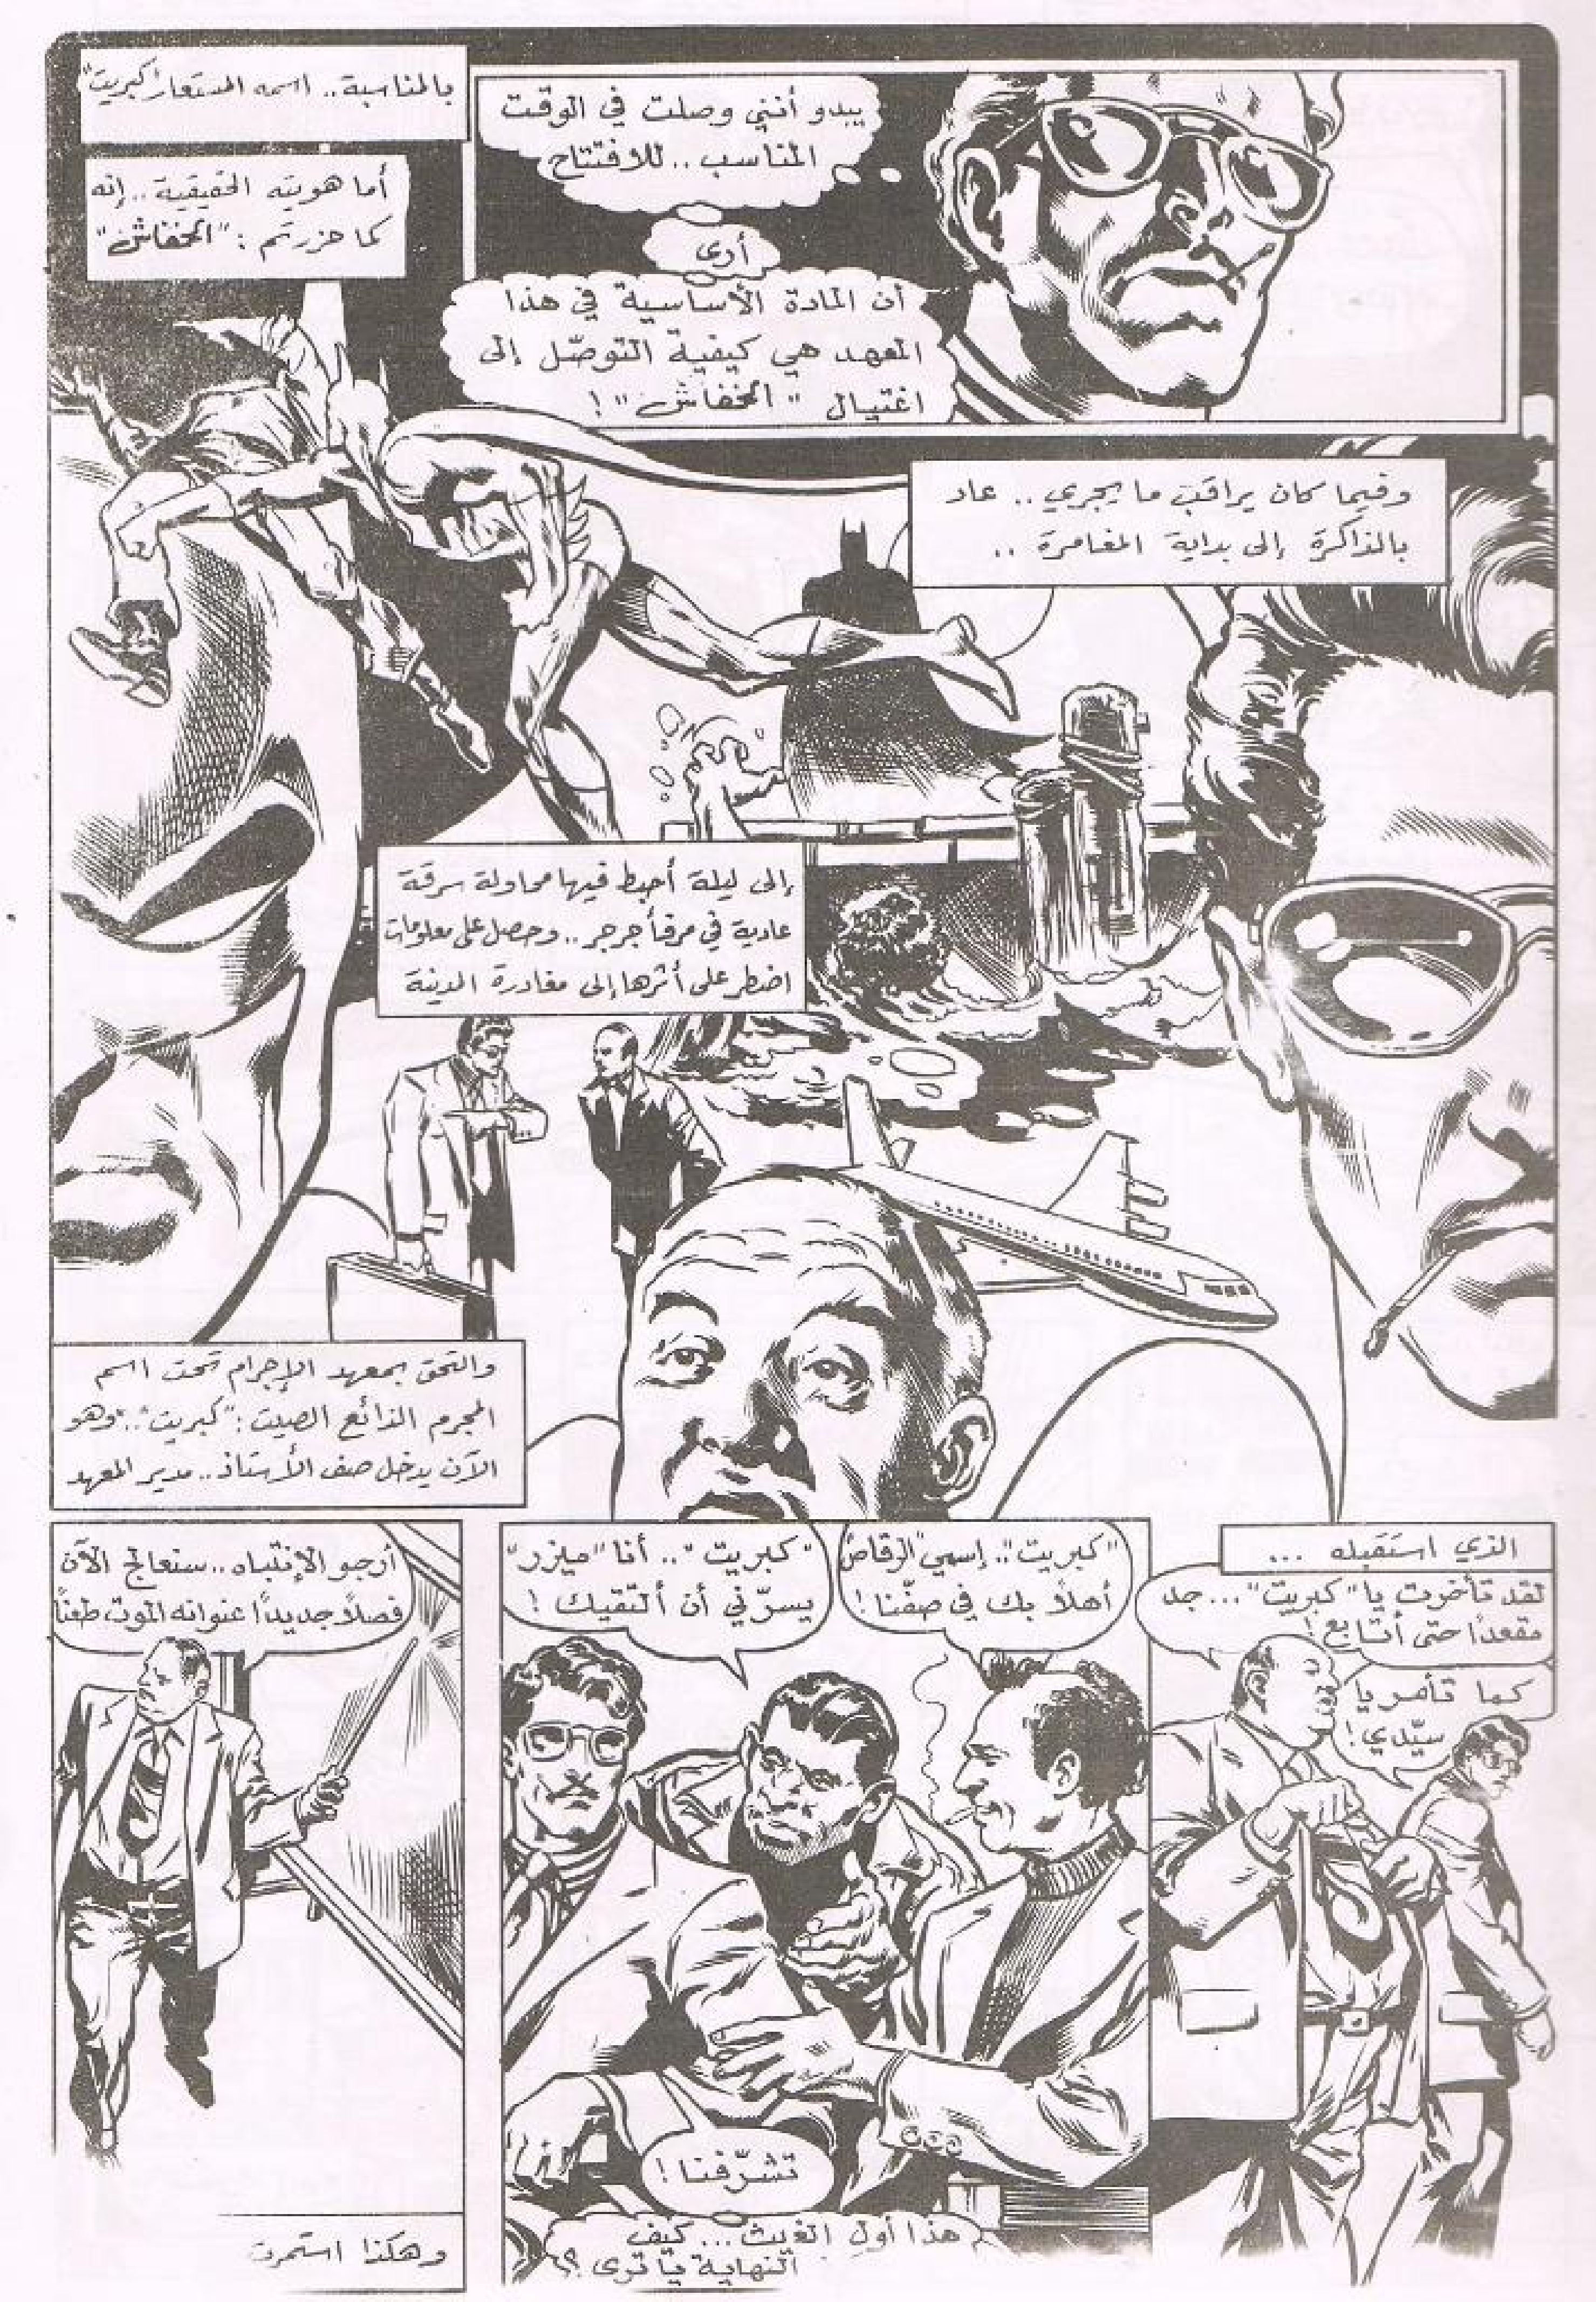 يبدو أنني وصلت في الوقت
المناسب.. للافتتاح
أرى
أن المادة الأساسية في هذا
المعهد هي كيفية التوصّل إلى
اغتيال "الخفاش"!
بالمناسبة.. اسمه المستعار "كبريت"
أما هويته الحقيقية.. إنه
كما حزرتم : "الخفاش"
وفيما كان يراقب ما يجري.. عاد
بالذاكرة إلى بداية المغامرة ..
إلى ليلة أحبط فيها محاولة سرقة
عادية في مرفأ جرجر.. وحصل على معلومات
اضطر على أثرها إلى مغادرة المدينة
والتحق بمعهد الإجرام تحت اسم
المجرم الذائع الصيت: "كبريت".. وهو
الآن يدخل صف الأستاذ.. مدير المعهد
الذي استقبله ...
لقد تأخرت يا "كبريت"... جد
مقعدًا حتى أتابع!
كما تأمر يا
سيّدي!
"كبريت".. إسمي "الرقاص"
أهلاً بك في صفّنا!
"كبريت".. أنا "ميزر"
يسرّني أن ألتقيك!
تشرّفنا!
هذا أول الغيث... كيف
النهاية يا ترى؟
أرجو الإنتباه.. سنعالج الآن
فصلاً جديدًا عنوانه الموت طعنًا
وهكذا استمرت